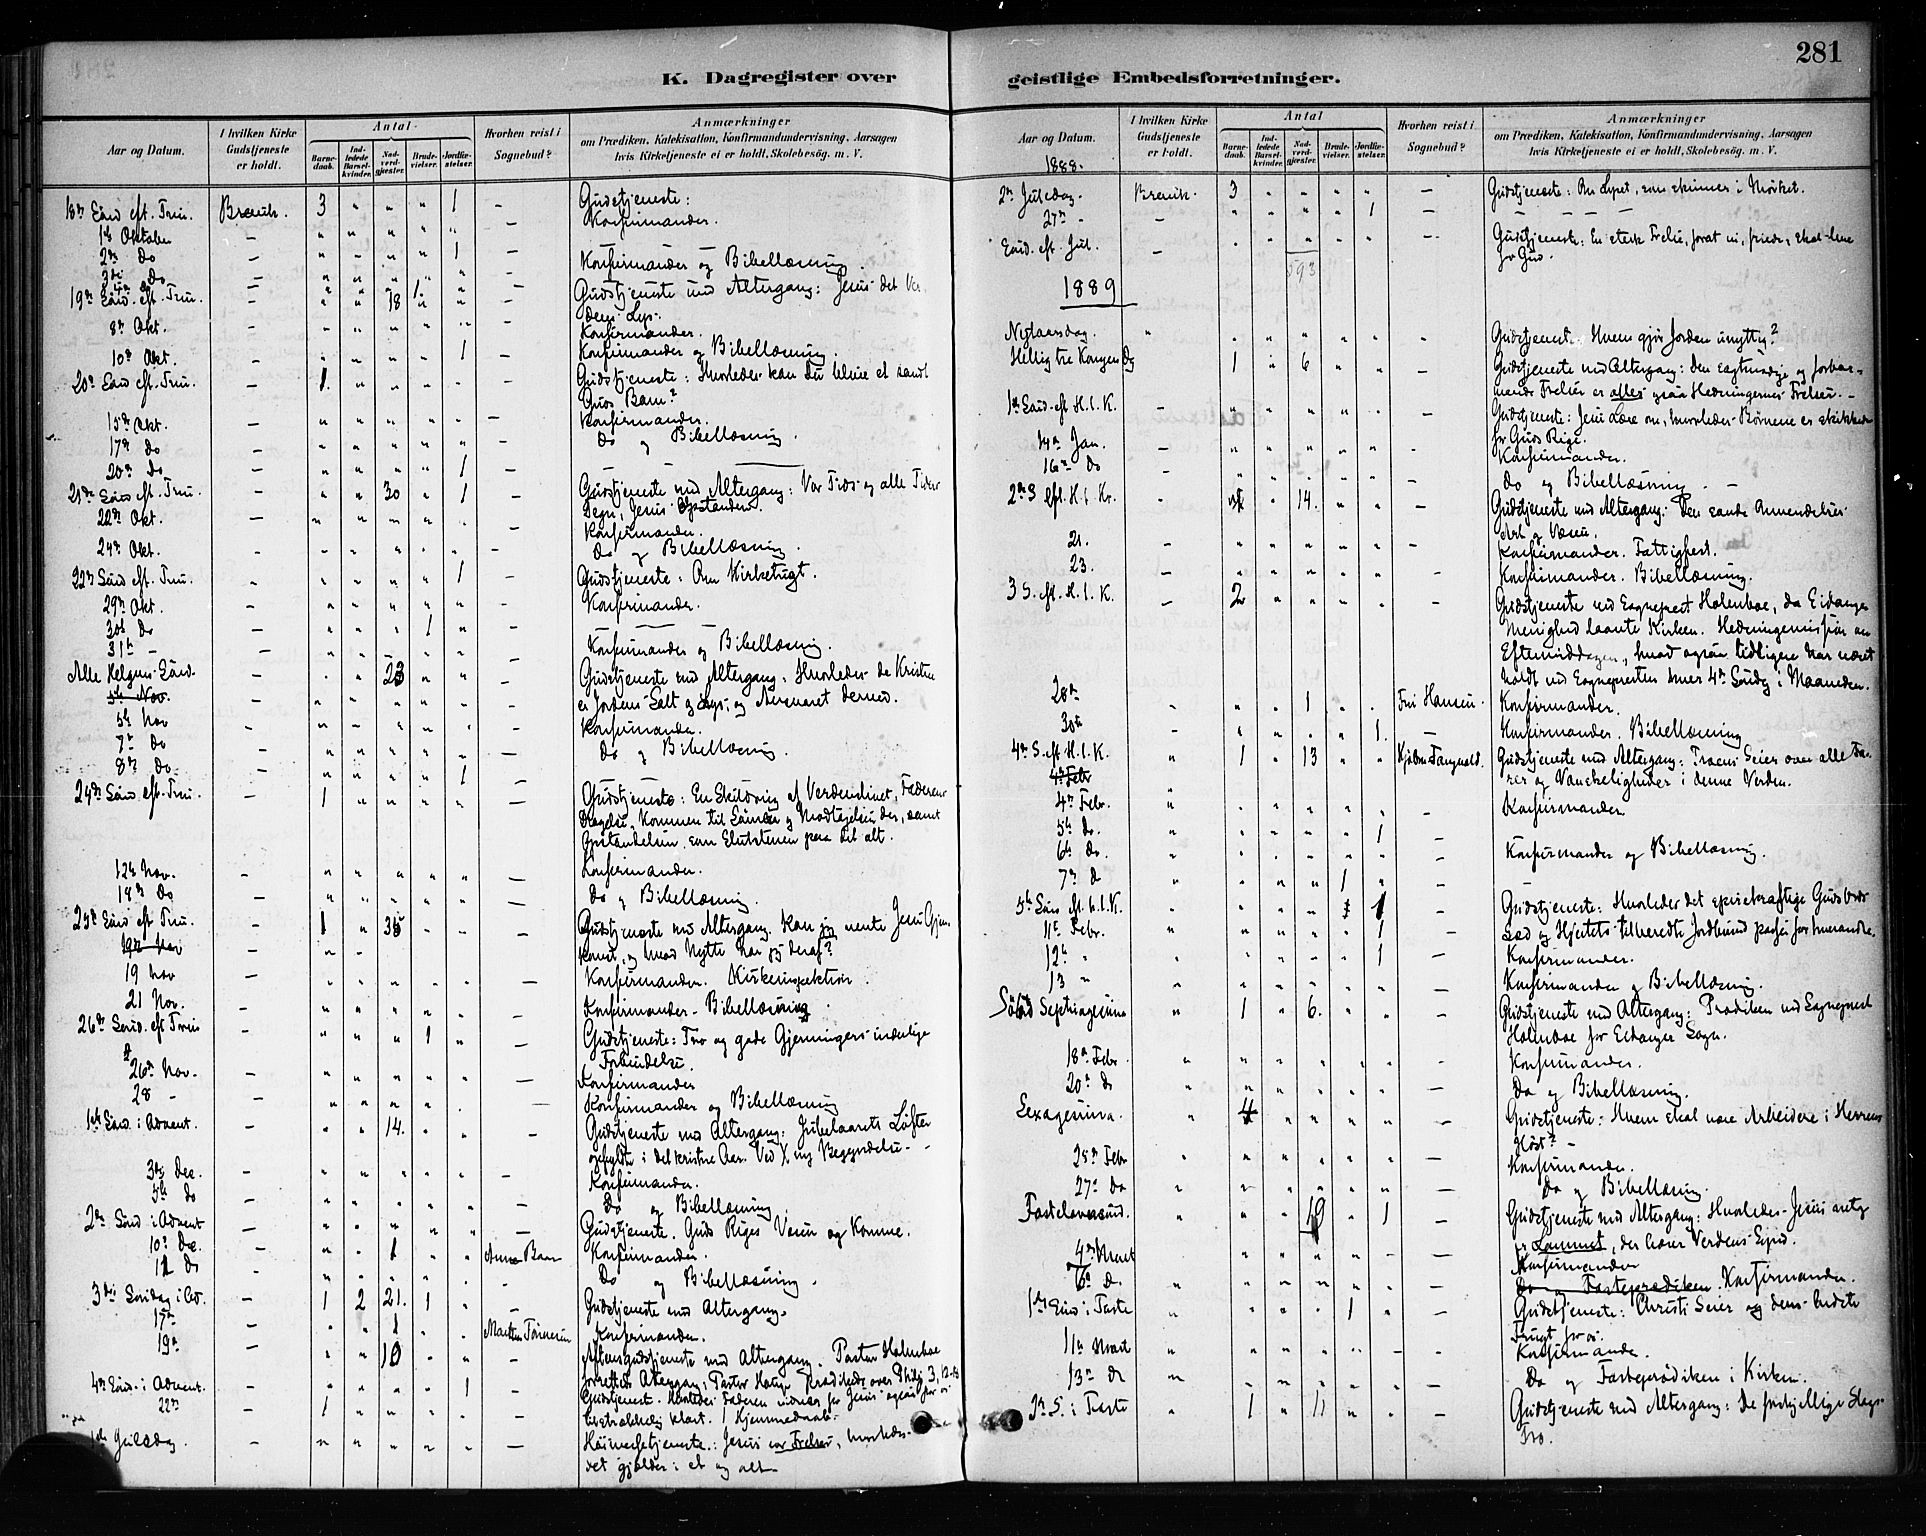 281
K. Dagregister over geistlige Embedsforretninger.
Aar og Datum.
I hvilken Kirke Gudstjeneste er holdt.
Antal
Barnedaab.
Indledede Barselkvinder.
Nadverdgjæster.
Brudevielser.
Jordfæstelser.
Hvorhen reist i Sognebud?
Anmærkninger
om Prædiken, Katekisation, Konfirmandundervisning, Aarsagen
hvis Kirketjeneste ei er holdt, Skolebesøg. m. V.
18de Sønd eft. Trin. Brevik. 3 " " " 1 – Gudstjeneste:
1ste Oktober – Konfirmander.
2den Do – 1
3die Do – Konfirmander og Bibellæsning.
4de Do 1
19de Sønd. eft. Trin. 18 Gudstjeneste med Altergang: Jesus det Ver
dens Lys.
8de Okt. – Konfirmander.
10de Okt. – 1 Konfirmander og Bibellæsning.
20de Sønd eft. Trin. – 1. Gudstjeneste: Hvorledes kan du blive et sandt
Guds Barn?
15de Okt. – Konfirmander.
17de Do – Do og Bibellæsning.
20de Do – 1
21de Sønd eft. Trin. – 30 1 Gudstjeneste med Altergang: Vor Tros og alle Tiders
Tegn, Jesu Opstandelse.
22de Okt. – Konfirmander.
24de Okt. – Do og Bibellæsning.
22de Sønd eft. Trin. – 1 Gudstjeneste: Om Kirketugt.
29de Okt. – Konfirmander.
30te Do – 1
31te – – Konfirmander og Bibellæsning.
Alle Helgens Sønd. – 23 Gudstjeneste med Altergang: Hvorledes de Kristne
er Jordens Salt og Lys, og Ansvaret derved.
5te Nov.
5te Nov – Konfirmander.
7de Do – Do og Bibellæsning.
8de Do – 1
24de Sønd eft. Trin. – 1 Gudstjeneste: En Skildring af Verdenslivet, Faderens
Dragelse, Kommen til Sønnen og Modtagelsen der, samt
Opstandelsen som Slutstenen paa det alt.
12te Nov. – Konfirmander.
14de Do – Do og Bibellæsning.
25de Sønd eft Trin. – 1 35 Gudstjeneste med Altergang. Kan jeg vente Jesu Gjen
komst, og hvad Nytte har jeg deraf?
19de Nov
19 Nov – Konfirmander. Kirkeinspektion.
21 Nov. – Konfirmander – Bibellæsning
26de Sønd. eft Trin – 1 Gudstjeneste: Tro og gode Gjerningers inderlige
Forbindelse.
26de Nov. – Konfirmander
28 – – Konfirmander og Bibellæsning
1ste Sønd. i Advent. – 14. Gudstjeneste med Altergang: Jubelaarets Løfter
opfyldte i det kristne Aar. Ved X ny Begyndelse.
3die Dec. – Konfirmander.
5te Do – Do og Bibellæsning
2den Sønd i Advent – Gudstjeneste. Guds Riges Væsen og Komme.
10de Dec. – 1 Anna Bam Konfirmander.
12 Do – Do og Bibellæsning.
3die Søndag i Adv. – 1 2 21. 1 Gudstjeneste med Altergang.
17de – 1 Konfirmander.
19de – 10 Aftensgudstjeneste med Altergang. Pastor Holmboe
4de Sønd. i Advent. – 1
22de – 1
1ste Juledag. – Høimessetjeneste: Jesus vor Frelser, hvorledes
det gjælder i et og alt
1888.
2den Juledag. Brevik. 3 – Gudstjeneste: Om Lyset, som skinner i Mørket.
27de – – 1
Sønd. eft. Jul. – Gudstjeneste: En sterk Frelser, forat vi, friede, skal leve
for Gud.
593
1889
Nytaarsdag. Gudstjeneste. Hvem gjør Jorden unyttig?
Hellig tre Kongers Dg 1 6 Gudstjeneste med Altergang: Den sagtmodige og forbar-
mende Frelser er alles ogsaa Hedningernes Frelser. –
1ste Sønd. eft H. 3. K. – Gudstjeneste: Jesu Lære om, hvorledes Børnene er skikkede
for Guds Rige.
14de Jan. – Konfirmander.
16de Do – Do og Bibellæsning. –
2den S eft. H. 3. K. 14. Gudstjeneste med Altergang: Den sande Anvendelses
Art og Væsen.
21. – Konfirmander. Fattigfest.
23. – Konfirmander. Bibellæsning.
3 S. eft. H. 3. K. – 2 Gudstjeneste ved Sognepræst Holmboe, da Eidanger
Menighed laante Kirken. Hedningemission om
Eftermiddagen, hvad ogsaa tidligere har været
holdt ved Sognepresten hver 4de Søndg i Maaneden.
28de 1 Hansen. Konfirmander.
30te 1. – Konfirmander. Bibellæsning
4de S. eft H. 3. K. 1 13 Gudstjeneste med Altergang: Troens Seier over alle Fa-
rer og Vanskeligheder i denne Verden.
4de Febr
4de Febr. Konfirmander.
5te do. 1
6te do. Konfirmander og Bibellæsning.
7de d 1
5te Sønd eft. h. 3. K. 1 Gudstjeneste: Hvorledes det spirekraftige Guds Ords
Sæd og Hjertets tilberedte Jordbund passer for hverandre.
11te Febr. 1 Konfirmander.
12te " 1
13 " Konfirmander og Bibellæsning.
Sønd Septuagesima 1 6. Gudstjeneste med Altergang: Prædiken ved Sogneprest
Holmboe for Eidanger Sogn.
18de Febr. Konfirmander.
20de Do Do og Bibellæsning.
Sexagesima. 4 Gudstjeneste: Hvem skal være Arbeidere i Herrens
Høst? –
25de Febr Konfirmander.
27de Do Do og Bibellæsning.
Fastelavnssønd. 19 1 Gudstjeneste med Altergang: Hvorledes Jesus aretg
er Lammet, der bærer Verdens Synd.
4de Marts Konfirmander
6te Do Do og Fasteprædiken. Konfirmander.
1ste Sønd i Faste 1 Gudstjeneste: Christi Seier og dens
Frugt for os.
11te Marts Konfirmander.
13de Do Do og Fasteprædiken i Kirken.
2den S. i Faste 1 11 Gudstjeneste med Altergang: De forskjellige Slags
Tro.